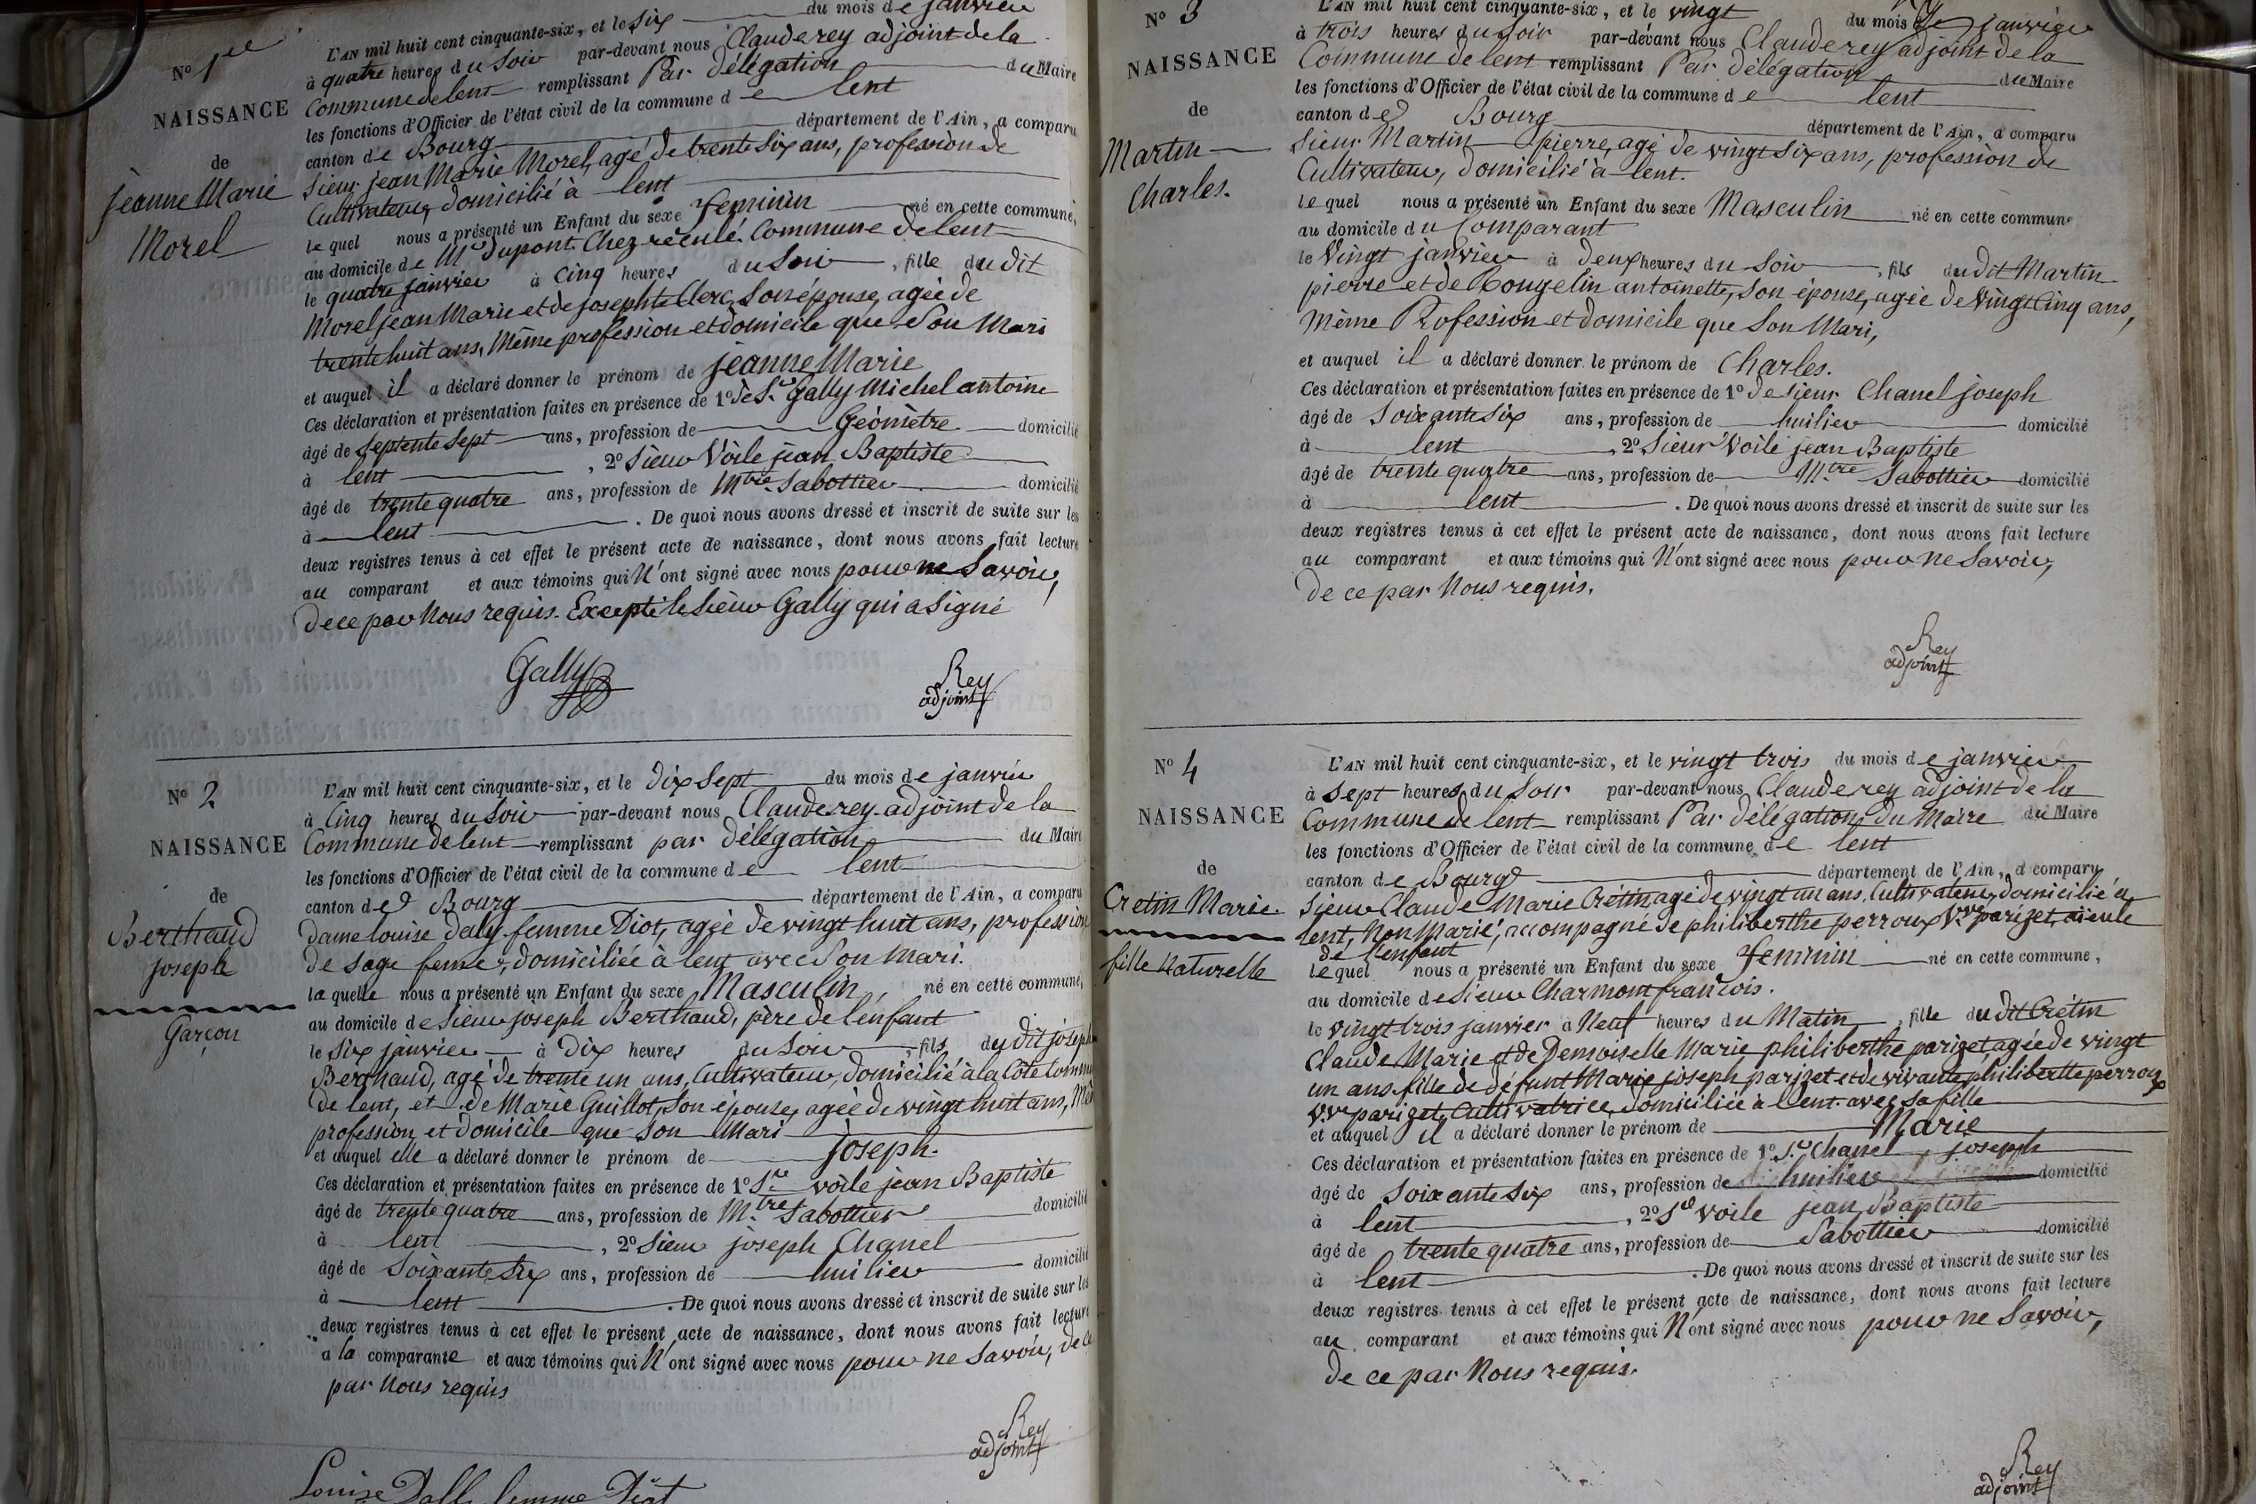 No 1er
NAISSANCE
de
jeanne Marie
Morel
L'AN mil huit cent cinquante-six, et le six du mois de janvier
à quatre heures du soir par-devant nous Claude rey adjoint de la
Commune de lent remplissant Par délégation du Maire
les fonctions d'Officier de l'état civil de la commune de lent
canton de Bourg département de l'Ain, a comparu
Sieur jean Marie Morel, agé de trente six ans, profession de
Cultivateur, domicilié à lent
lequel nous a présenté un Enfant du sexe feminin né en cette commune,
au domicile de Mr dupont Chez réculé Commune de lent
le quatre janvier à Cinq heures du Soir, fille du dit
Morel jean Marie et de josephte Clerc, Son épouse, agée de
trente huit ans, Même profession et domicile que Son Mari
et auquel il a déclaré donner le prénom de jeanne Marie
Ces déclaration et présentation faites en présence de 1º de Sr Gally Michel antoine
âgé de Septente Sept ans, profession de Géomètre domicilié
à lent, 2º Sieur Voile jean Baptiste
âgé de trente quatre ans, profession de Mtre Sabottier domicilié
à lent. De quoi nous avons dressé et inscrit de suite sur les
deux registres tenus à cet effet le présent acte de naissance, dont nous avons fait lecture
au comparant et aux témoins qui N'ont signé avec nous pour ne Savoir,
de ce par Nous requis. Excepté le Sieur Gally qui a Signé
Gally
Rey
adjoint
No 2
NAISSANCE
de
Berthaud
joseph
Garçon
L'AN mil huit cent cinquante-six, et le dix Sept du mois de janvier
à Cinq heures du Soir par-devant nous Claude rey adjoint de la
Commune de lent remplissant par délégation du Maire
les fonctions d'Officier de l'état civil de la commune de lent
canton de Bourg département de l'Ain, a comparu
Dame louise daly femme Diot, agée de vingt huit ans, profession
de sage feme, domiciliée à lent avec Son Mari.
laquelle nous a présenté un Enfant du sexe Masculin, né en cette commune,
au domicile de Sieur joseph Berthaud, père de l'enfant
le Six janvier à Dix heures du Soir, fils du dit joseph
Berthaud, agé de trente un ans, Cultivateur, domicilié à la Côte Commune
de lent, et de Marie Guillot, Son épouse, agée de vingt huit ans, Même
profession et domicile que Son Mari
et auquel elle a déclaré donner le prénom de joseph.
Ces déclaration et présentation faites en présence de 1º Sr voile jean Baptiste
âgé de trente quatre ans, profession de Mtre Sabottier domicilié
à lent, 2º Sieur joseph Chanel
âgé de Soixante Six ans, profession de huilier domicilié
à lent. De quoi nous avons dressé et inscrit de suite sur les
deux registres tenus à cet effet le présent acte de naissance, dont nous avons fait lecture
a la comparante et aux témoins qui N'ont signé avec nous pour ne Savoir, de ce
par Nous requis
Rey
adjoint
Louise Dally femme Diot
No 3
NAISSANCE
de
Martin
Charles.
L'AN mil huit cent cinquante-six, et le vingt du mois de janvier
à trois heures du Soir par-devant nous Claude rey adjoint de la
Commune de lent remplissant Par délégation du Maire
les fonctions d'Officier de l'état civil de la commune de lent
canton de Bourg département de l'Ain, a comparu
Sieur Martin pierre, agé de vingt Six ans, profession de
Cultivateur, domicilié à lent.
lequel nous a présenté un Enfant du sexe Masculin né en cette commune
au domicile du Comparant
le Vingt janvier à deux heures du Soir, fils du dit Martin
pierre et de Rongelin antoinette, Son épouse, agée de Vingt Cinq ans,
Même Profession et domicile que Son Mari,
et auquel il a déclaré donner le prénom de Charles.
Ces déclaration et présentation faites en présence de 1º de Sieur Chanel joseph
âgé de Soixante Six ans, profession de huilier domicilié
à lent, 2º Sieur Voile jean Baptiste
âgé de trente quatre ans, profession de Mtre Sabottier domicilié
à lent. De quoi nous avons dressé et inscrit de suite sur les
deux registres tenus à cet effet le présent acte de naissance, dont nous avons fait lecture
au comparant et aux témoins qui N'ont signé avec nous pour ne Savoir,
de ce par Nous requis.
Rey
adjoint
No 4
NAISSANCE
de
Cretin Marie
fille Naturelle
L'AN mil huit cent cinquante-six, et le vingt trois du mois de janvier
à Sept heures du Soir par-devant nous Claude rey adjoint de la
Commune de lent remplissant Par délégation du Maire du Maire
les fonctions d'Officier de l'état civil de la commune de lent
canton de Bourg département de l'Ain, a comparu
Sieur Claude Marie Crétin, agé de vingt un ans, Cultivateur, domicilié à
lent, Non Marié, accompagné de philiberthe perroux Vve parizet, aieule
de l'enfant
lequel nous a présenté un Enfant du sexe feminin né en cette commune,
au domicile de Sieur Charmont françois.
le vingt trois janvier à Neuf heures du Matin, fille du dit Crétin
Claude Marie et de Demoiselle Marie philiberthe parizet, agée de vingt
un ans, fille de défunt Marie joseph parizet et de vivante philiberthe perroux
Vve parizet, Cultivatrice, domiciliée à lent avec Sa fille
et auquel il a déclaré donner le prénom de Marie
Ces déclaration et présentation faites en présence de 1º Sr Chanel joseph
âgé de Soixante Six ans, profession de huilier domicilié
à lent, 2º Sr Voile jean Baptiste
âgé de trente quatre ans, profession de Sabottier domicilié
à lent. De quoi nous avons dressé et inscrit de suite sur les
deux registres tenus à cet effet le présent acte de naissance, dont nous avons fait lecture
au comparant et aux témoins qui N'ont signé avec nous pour ne Savoir,
de ce par Nous requis.
Rey
adjoint